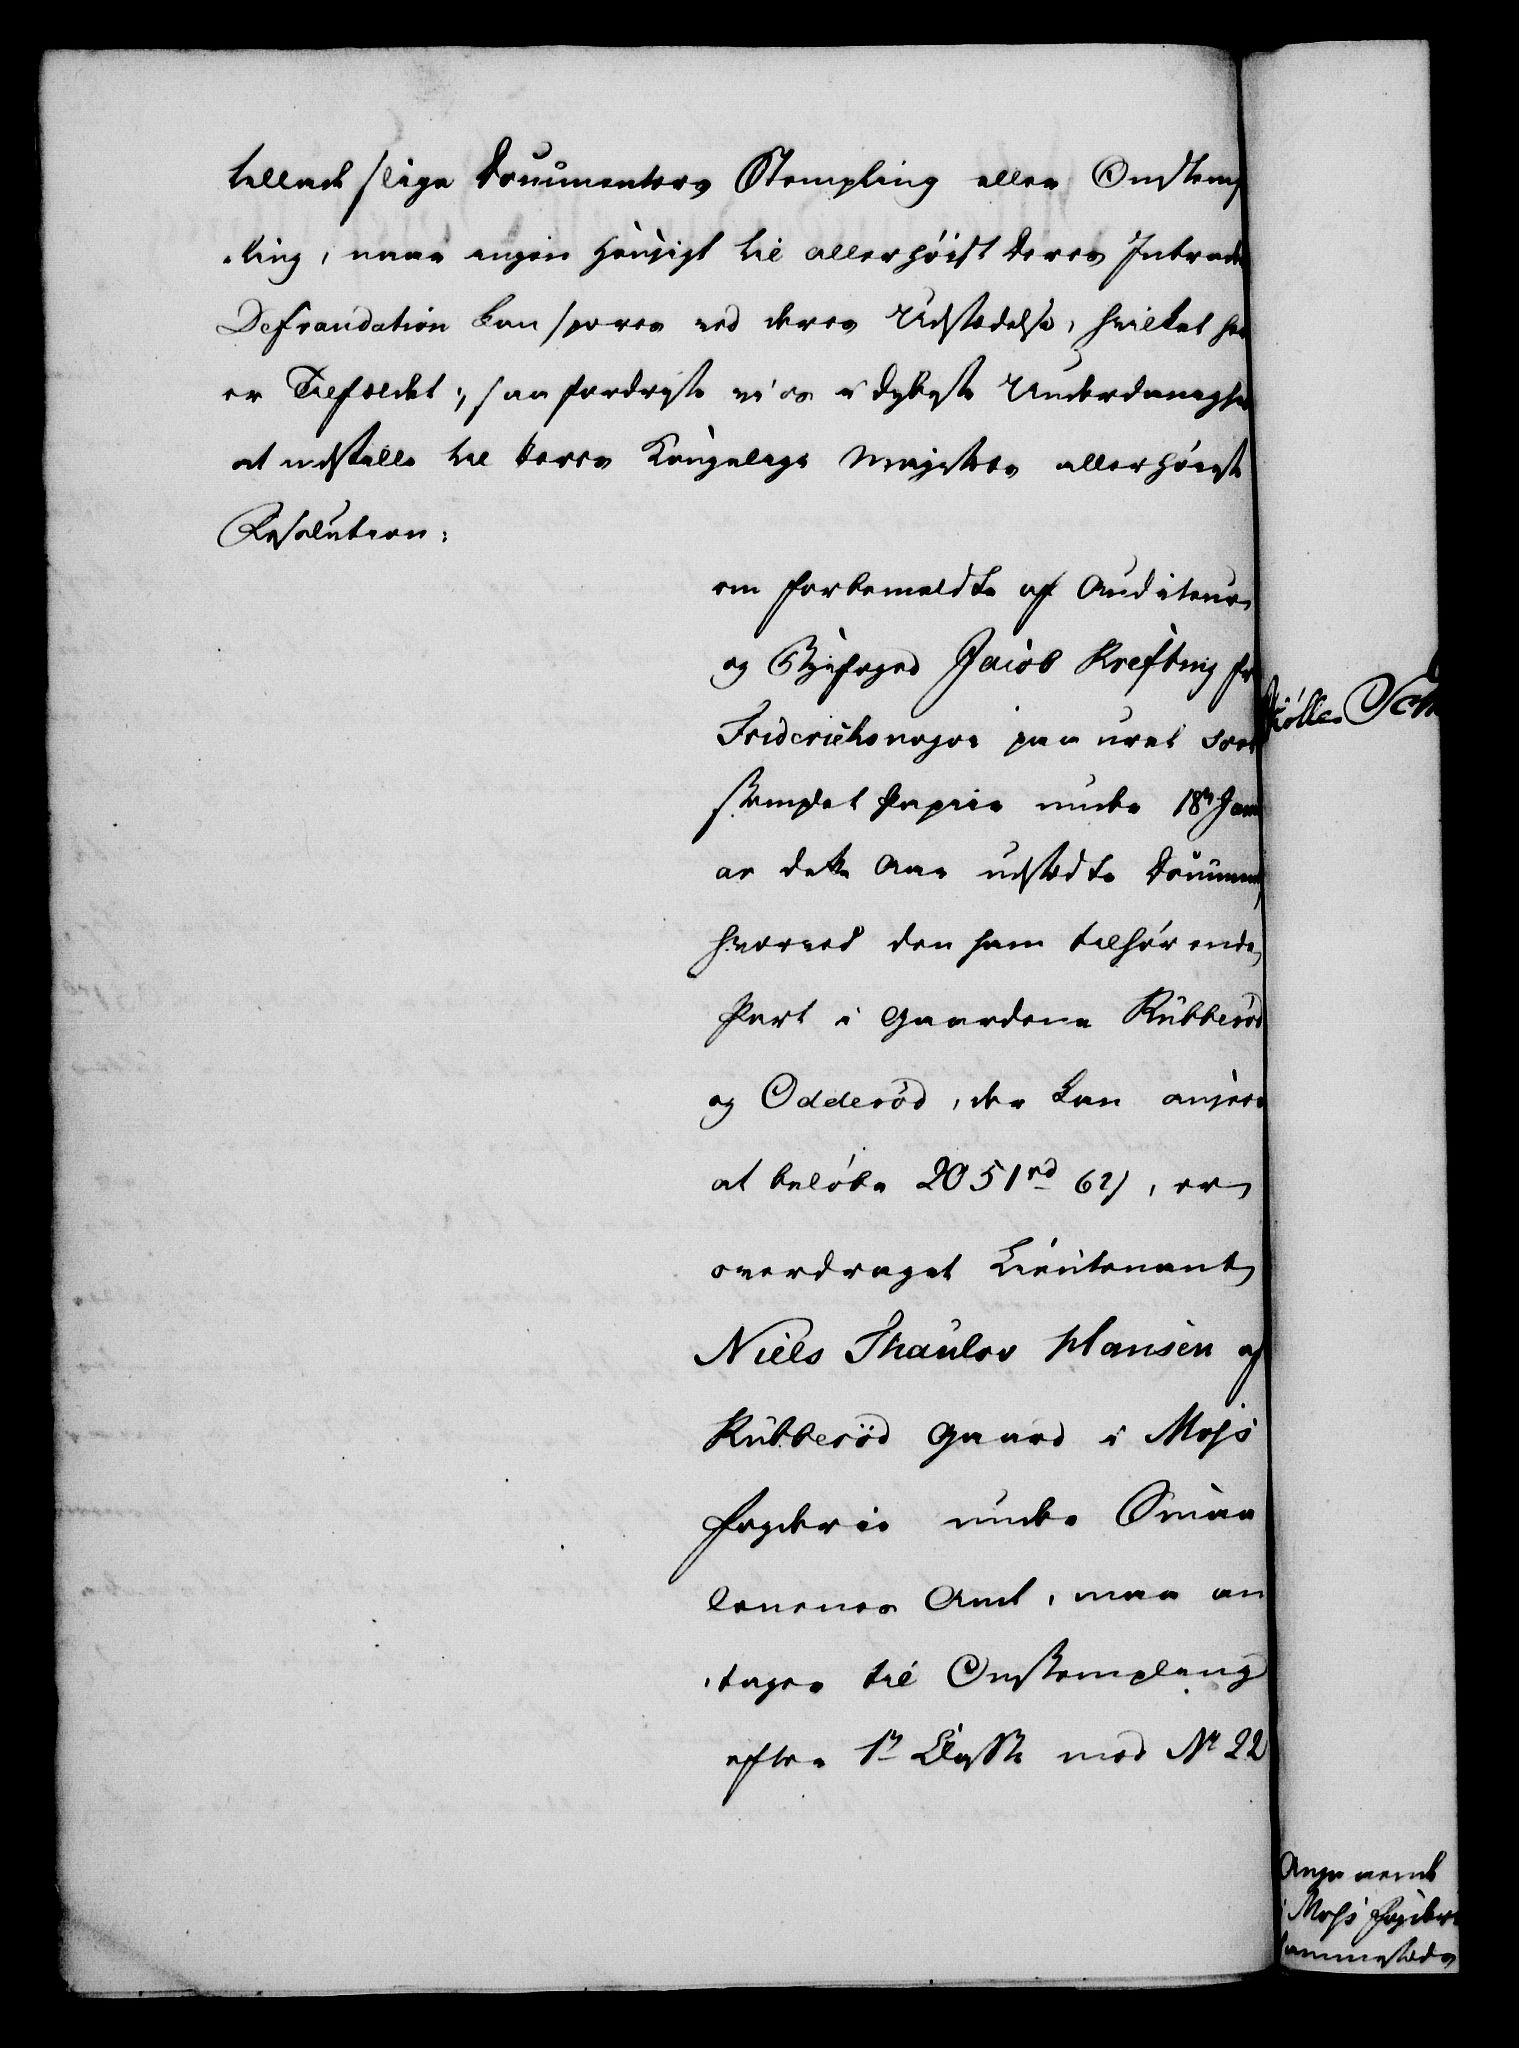 tilladt slige Documenters Stempling eller Omstemp
ling, naar ingen Hensigt til allerhöist Deres Intrade
Defraudation kan spores ved deres Udstædelse, hvilket her
er Tilfældet; saa fordriste vi os i dybeste Underdanighed
at indstille til Deres Kongelige Majestæts allerhöieste
Resolution:
om forbemeldte af Auditeur
og Byefoged Jacob Krefting for
Friderichsnagor paa uret
stemplet Papiir under 18de Janu
ar dette Aar udstædte Document,
hvorved den ham tilhörende
Part i Gaardene Rübberöd
og Odderöd, der kan ansees
at belöbe 2051 rd 62 s, er
overdraget Lieutenant
Niels Thaulov Hansen af
Rübberöd Gaard i Moss
Fogderie under Smaa
lenenes Amt, maa an
tages til Omstempling
efter 1ste Classe med No 22
Möller Sch
Angaaende
i Moss Fogderi
sammesteds